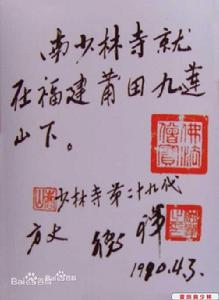 南少林寺就
在福建莆田九莲
山下。
佛法僧宝
少林寺第二十九代
方丈 德禅
1990.4.3
Bai百科